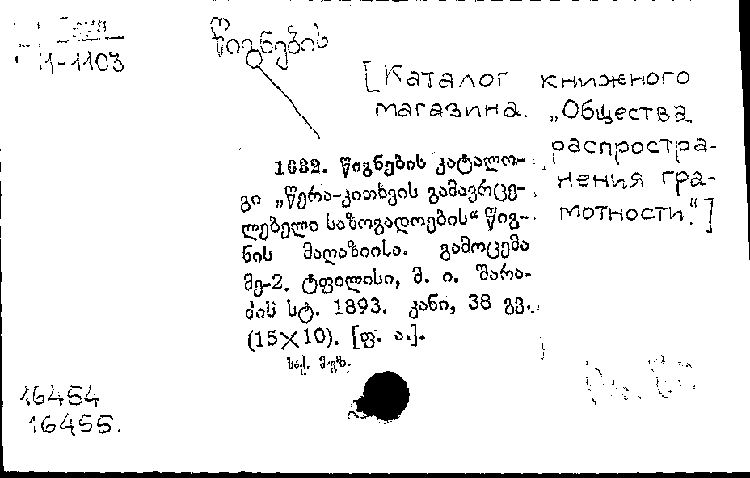 1-1103
წიგნების
[Каталог книжного
магазина „Общества
распростра-
нения гра-
мотности".]
1682. წიგნების კატალო-
გი „წერა-კითხვის გამავრცე-
ლებელი საზოგადოების“ წიგ-
ნის მაღაზიისა. გამოცემა
მე-2. ტფილისი, მ. ი. შარა-
ძის სტ. 1893. კანი, 38 გვ.
(15×10). [ფ. ა.].
საქ. მუზ.
16454
16455.